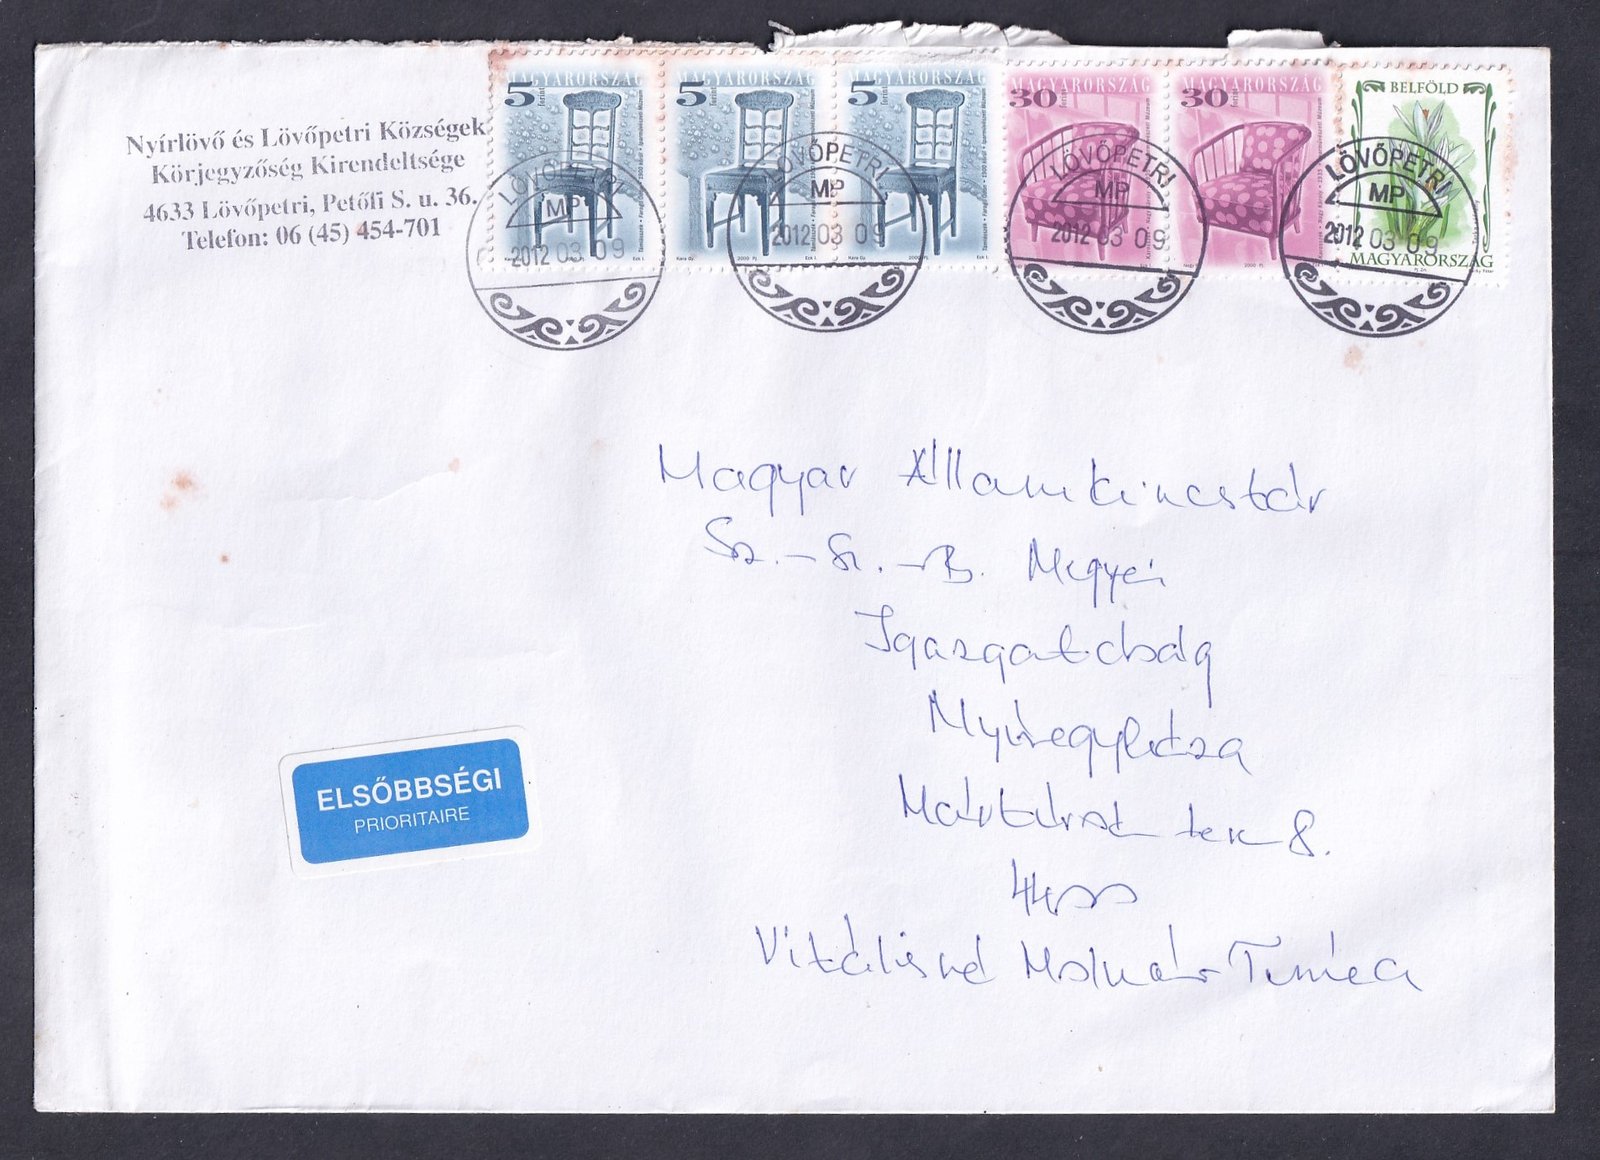 Nyírlövő és Lövőpetri Községek
Körjegyzőség Kirendeltsége
4633 Lövőpetri, Petőfi S. u. 36.
Telefon: 06 (45) 454-701
MAGYARORSZÁG
5 forint
MAGYARORSZÁG
5 forint
MAGYARORSZÁG
5 forint
MAGYARORSZÁG
30 forint
MAGYARORSZÁG
30 forint
BELFÖLD
MAGYARORSZÁG
LÖVŐPETRI
MP
2012 03 09
LÖVŐPETRI
MP
2012 03 09
LÖVŐPETRI
MP
2012 03 09
LÖVŐPETRI
MP
2012 03 09
Magyar Államkincstár
Sz.-Sz.-B. Megyei
Igazgatóság
Nyíregyháza
tér 8.
4400
Vitálisné Molnár Tímea
ELSŐBBSÉGI
PRIORITAIRE